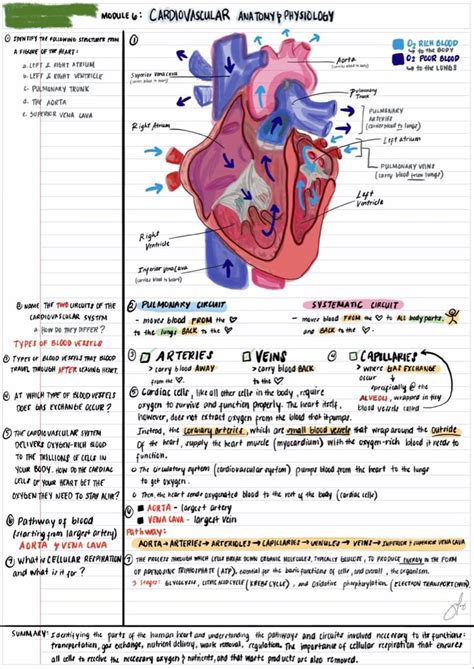 MODULE 6: CARDIOVASCULAR ANATOMY & PHYSIOLOGY
① IDENTIFY THE FOLLOWING STRUCTURES FROM
A FIGURE OF THE HEART:
a. LEFT & RIGHT ATRIUM
b. LEFT & RIGHT VENTRICLE
c. PULMONARY TRUNK
d. THE AORTA
e. SUPERIOR VENA CAVA
①
O₂ RICH BLOOD
↳ to the BODY
O₂ POOR BLOOD
↳ to the LUNGS
Superior vena cava
Aorta
Pulmonary
Trunk
PULMONARY
ARTERIES
(carries blood to lungs)
Right Atrium
Left atrium
PULMONARY VEINS
(carry blood from lungs)
Left
Ventricle
Right
Ventricle
Inferior Vena Cava
(carries blood to heart)
② NAME THE TWO CIRCUITS OF THE
CARDIOVASCULAR SYSTEM
a. HOW DO THEY DIFFER?
② PULMONARY CIRCUIT
- moves blood FROM the ♡
to the lungs BACK to the ♡
SYSTEMATIC CIRCUIT
- moves blood FROM the ♡ to ALL body parts
and BACK to the ♡.
TYPES OF BLOOD VESSELS
③ TYPES OF BLOOD VESSELS THAT BLOOD
TRAVEL THROUGH AFTER LEAVING HEART.
③ ARTERIES
> carry blood AWAY
from the ♡.
VEINS
> carry blood BACK
to the ♡
④ CAPILLARIES
> where GAS EXCHANGE
occur
→ specifically @ the
ALVEOLI, wrapped in tiny
blood vessels called
④ AT WHICH TYPE OF BLOOD VESSELS
DOES GAS EXCHANGE OCCUR?
⑤ THE CARDIOVASCULAR SYSTEM
DELIVERS OXYGEN-RICH BLOOD
TO THE TRILLIONS OF CELLS IN
YOUR BODY. HOW DO THE CARDIAC
CELLS OF YOUR HEART GET THE
OXYGEN THEY NEED TO STAY ALIVE?
⑤ Cardiac cells, like all other cells in the body, require
oxygen to survive and function properly. The heart itself,
however, does not extract oxygen from the blood that it pumps.
Instead, the coronary arteries, which are small blood vessels that wrap around the outside
of the heart, supply the heart muscle (myocardium) with the oxygen-rich blood it needs to
function.
The circulatory system (cardiovascular system) pumps blood from the heart to the lungs
to get oxygen.
Then, the heart sends oxygenated blood to the rest of the body (cardiac cells)
⑥ Pathway of blood
(starting from largest artery)
AORTA & VENA CAVA
⑥ AORTA - largest artery
VENA CAVA - largest vein
Pathway:
AORTA → ARTERIES → ARTERIOLES → CAPILLARIES → VENULES → VEINS → INFERIOR & SUPERIOR VENA CAVA
⑦ WHAT IS CELLULAR RESPIRATION
and what is it for?
⑦ THE PROCESS THROUGH WHICH CELLS BREAK DOWN ORGANIC MOLECULES, TYPICALLY GLUCOSE, TO PRODUCE ENERGY IN THE FORM
OF ADENOSINE TRIPHOSPHATE (ATP), essential for the basic functions of cells and overall, the organism.
3 stages: GLYCOLYSIS, CITRIC ACID CYCLE (KREBS CYCLE), and oxidative phosphorylation (ELECTRON TRANSPORT CHAIN)
SUMMARY: Identifying the parts of the human heart and understanding the pathways and circuits involved necessary to its function:
transportation, gas exchange, nutrient delivery, work removal, regulation. The importance of cellular respiration that ensures
all cells to receive the necessary oxygen & nutrients, and that waste products are eliminated.